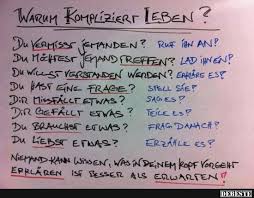 WARUM KOMPLIZIERT LEBEN?
DU VERMISST JEMANDEN? RUF IHN AN!
DU MÖCHTEST JEMAND TREFFEN? LAD IHN EIN!
DU WILLST VERSTANDEN WERDEN? ERKLÄRE ES!
DU HAST EINE FRAGE? STELL SIE!
DIR MISSFÄLLT ETWAS? SAG ES!
DIR GEFÄLLT ETWAS? TEILE ES!
DU BRAUCHST ETWAS? FRAG DANACH!
DU LIEBST ETWAS? ERZÄHLE ES!
NIEMAND KANN WISSEN, WAS IN DEINEM KOPF VORGEHT
ERKLÄREN IST BESSER ALS ERWARTEN!
DEBESTE